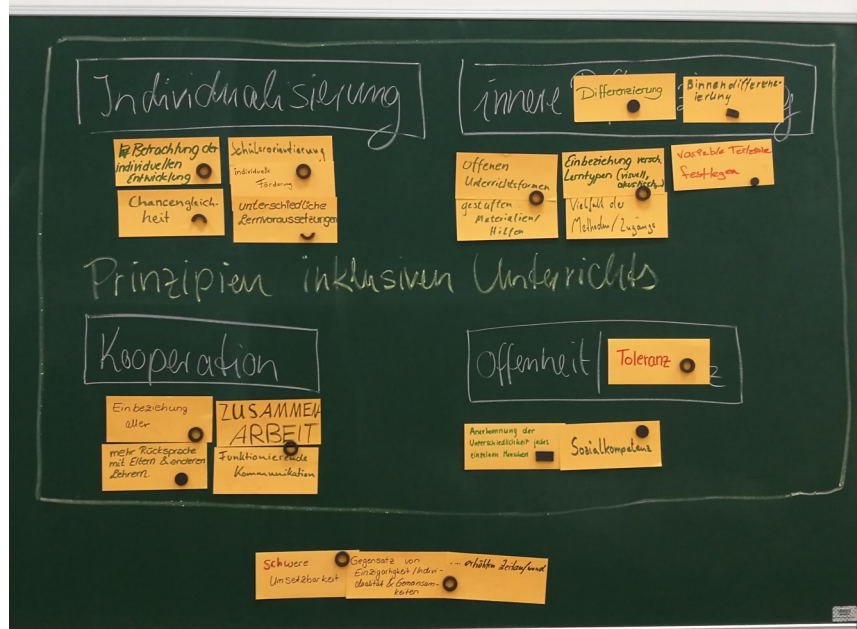 Individualisierung
Betrachtung der
individuellen
Entwicklung
Schülerorientierung
individuelle
Förderung
Chancengleich-
heit
unterschiedliche
Lernvoraussetzungen
innere
Differenzierung
Binnendifferenz-
ierung
Offenen
Unterrichtsformen
gestuften
Materialien/
Hilfen
Einbeziehung versch.
Lerntypen (visuell,
akustisch...)
Vielfalt der
Methoden/Zugänge
variable Teilziele
festlegen
Prinzipien inklusiven Unterrichts
Kooperation
Einbeziehung
aller
ZUSAMMEN
ARBEIT
mehr Rücksprache
mit Eltern & anderen
Lehrern
Funktionierende
Kommunikation
Offenheit |
Toleranz
Anerkennung der
Unterschiedlichkeit jedes
einzelnen Menschen
Sozialkompetenz
Schwere
Umsetzbarkeit
Gegensatz von
Einzigartigkeit/Indivi-
dualität & Gemeinsam-
keiten
... erhöhten Zeitaufwand